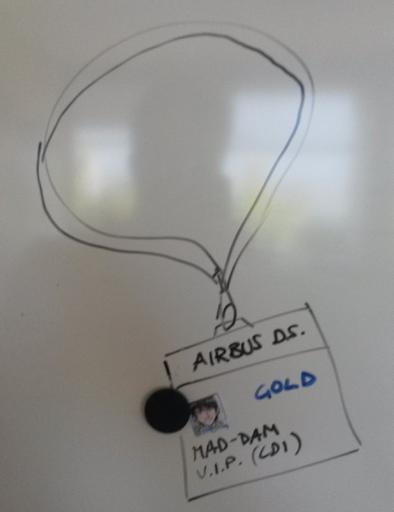 AIRBUS DS.
GOLD
MAD-DAM
V.I.P. (CDI)